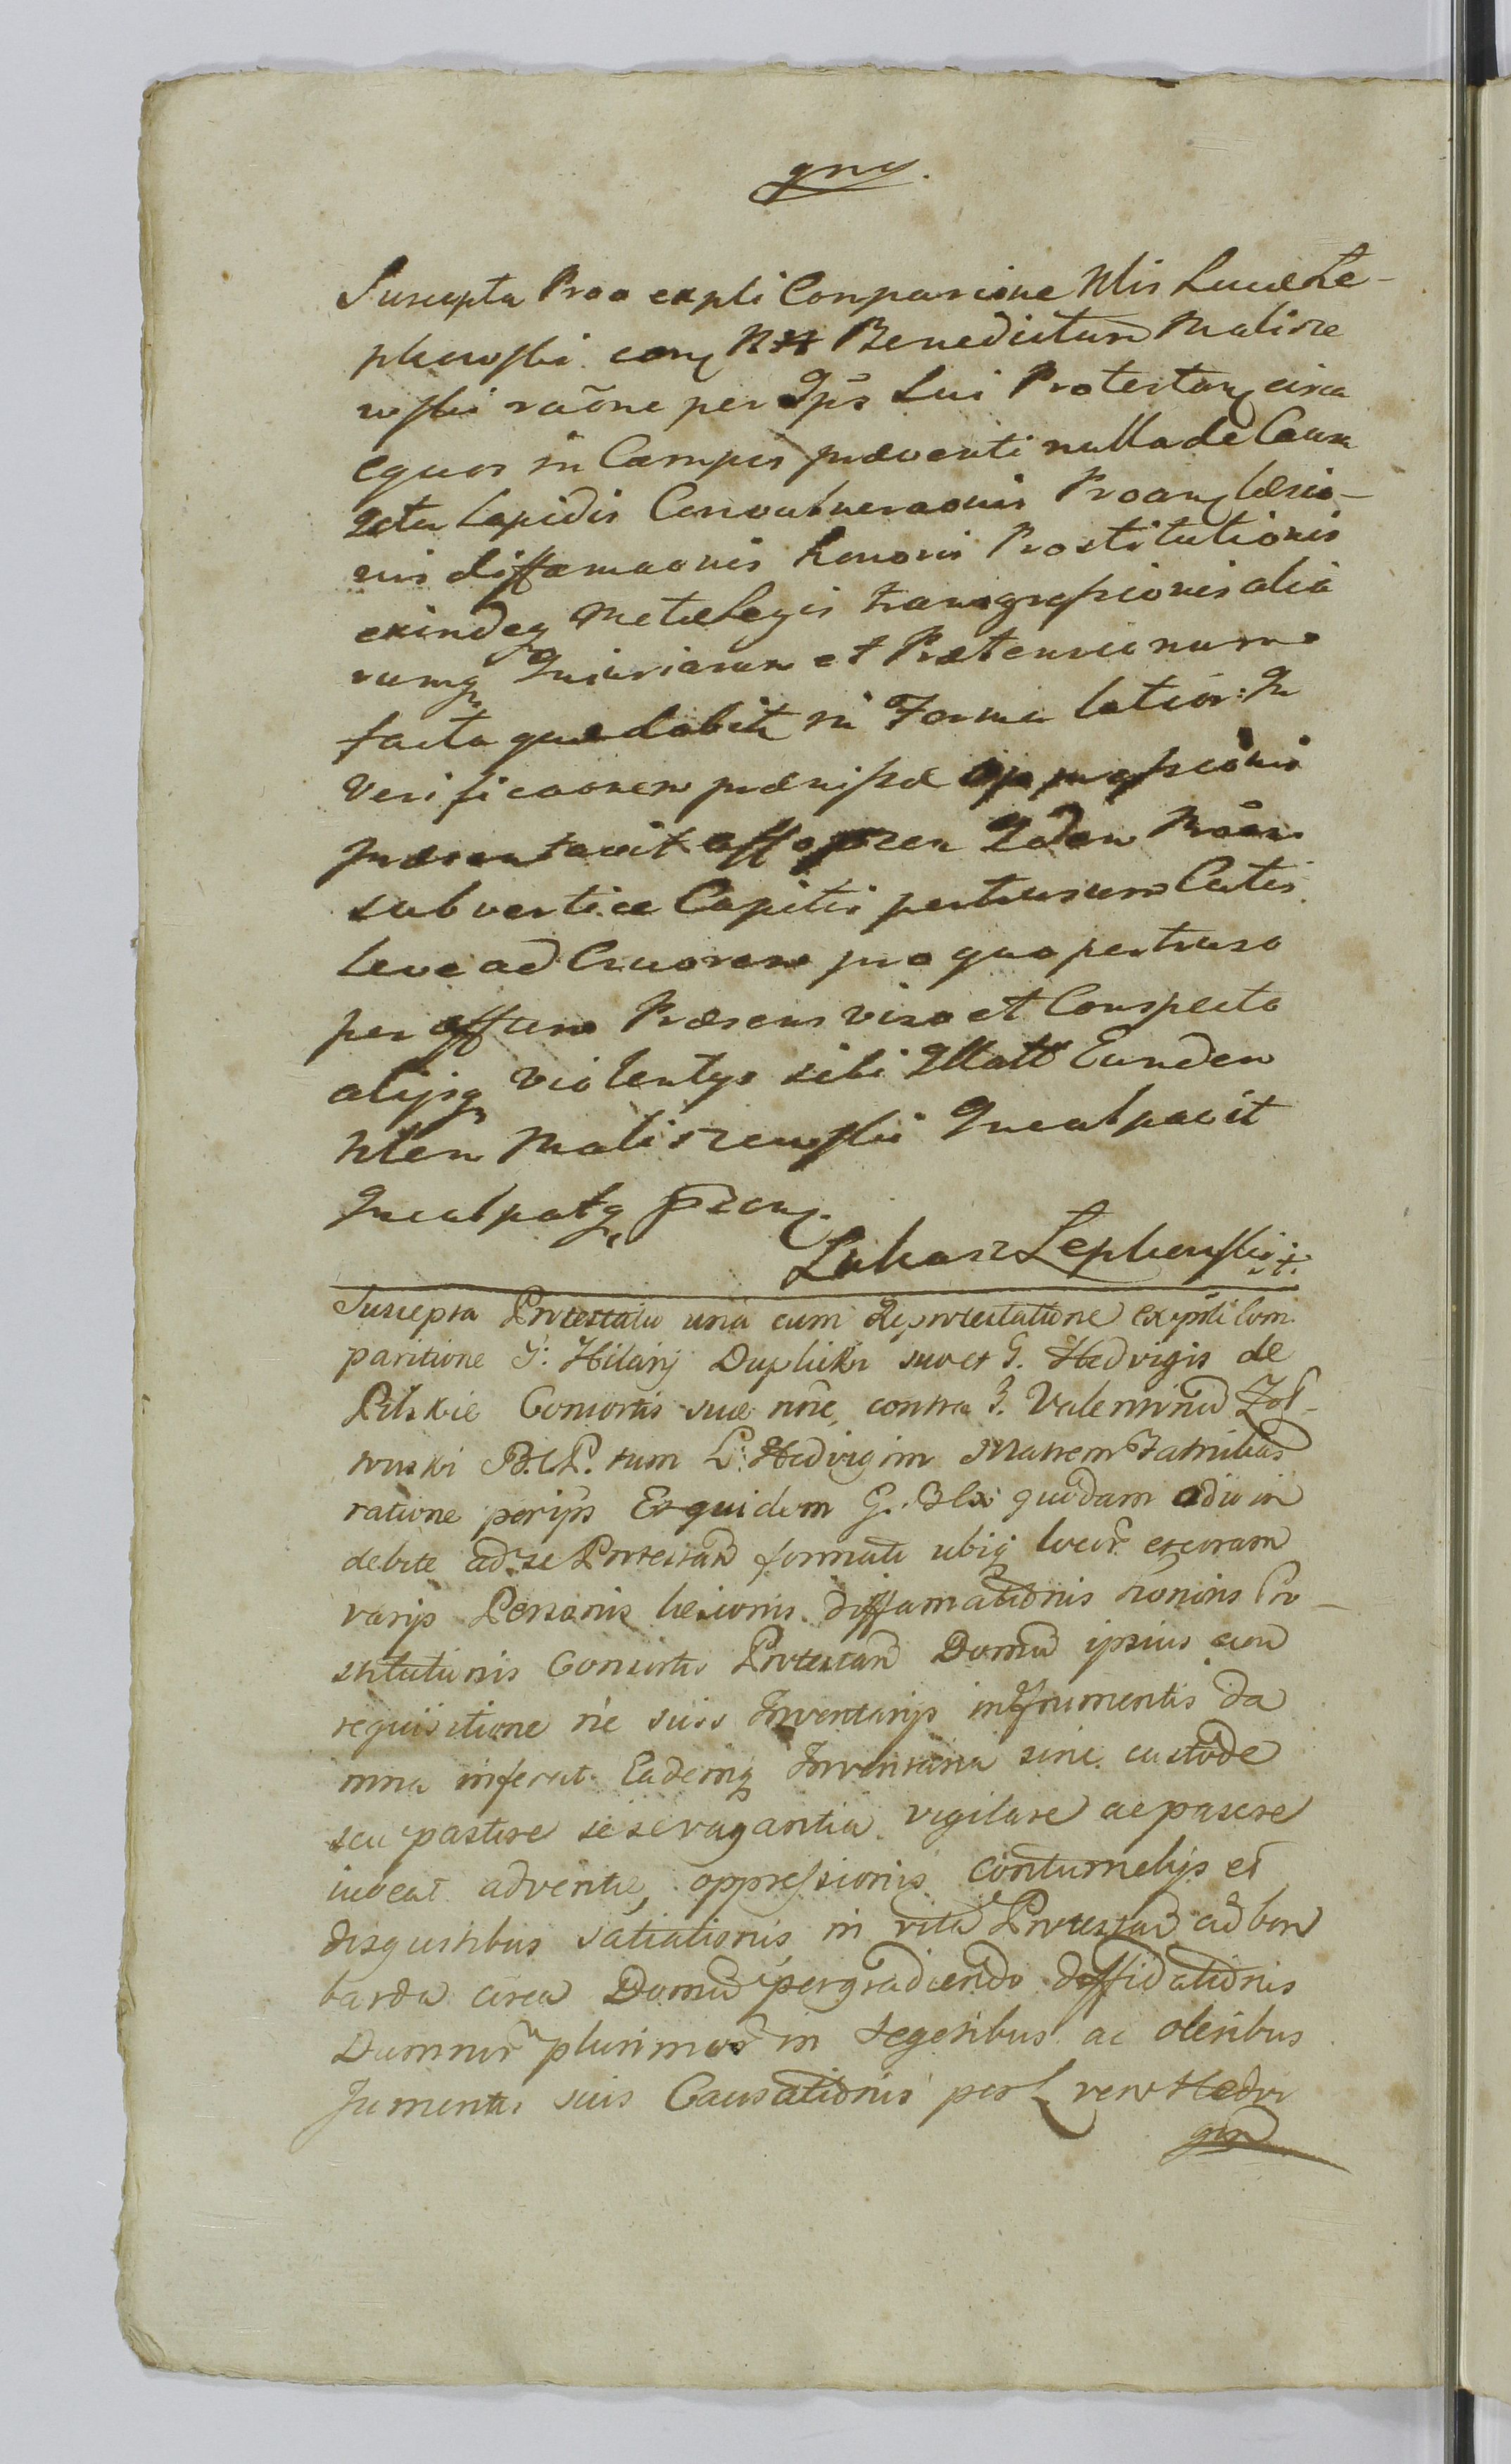 Suscepta Proa expli Comparicione Nlis Lucæ Le-
phowski con Benedictum Malisze
wski raõne per Ips Sui Protestan circa
equos in Campis præventi nulla de Causa
Ictu Lapidis Convulneraonis Proan læsio-
nis diffamaonis honoris Prostitutionis
exindeq Metæ Legis transgressionis alia
rumq Iniuriarum et Prætensionum
facta quæ dabitr in Forma latior: In
Verificaonem præmissæ
præsentavit offo
sub vertice Capitis pertusum Cutis
leve ad Cruorem pro quo pertuso
per offium Præsens viso et Conspecto
alijsq violentys sibi Illatt Eundem
Nlem Maliszewski Inculpavit
Inculpatq przm.
Lukasz Łephowski
Suscepta Protestatio una cum Reprotestatione expsti Com
paritione G: Hilarij Duplicki suo et G. Hedvigis de
Pilskie Consortis suæ nõie, contra G. Valentinũ Żoł-
towski B. C. P. tum L: Hedvigim Matrem Familias
ratione per ips Et quidem G. quodam odio in
debite ad se Protestan formato ubiq locor et coram
varijs Personis læsionis diffamationis honoris Pro-
stitutionis Consortis Protestan Domũ ipsius cum
requisitione ne suis Inventarijs in frumentis da
mna inferat Eademq Inventaria sine custode
seu pastore se se vagantia vigilare ac pascere
iubeat adventæ, oppressionis contumelijs et
disgustibus satiationis in vitã Protestan cũ bom
barda circa Domũ pergradiendo diffidationis
Damnor plurimor in segetibus ac oleribus
Jumentis suis Causationis per L vero Hedvi
gim